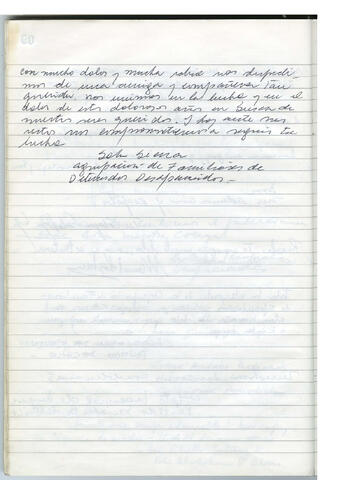 con mucho dolor y mucha rabia nos despedi-
mos de una amiga y compañera tan
querida. nos unimos en la lucha y en el
dolor de estos dolorosos años en busca de
nuestros seres queridos. I hoy ante sus
restos nos comprometemos a seguir tu
lucha
Sola Sierra
Agrupación de Familiares de
Detenidos Desaparecidos.-